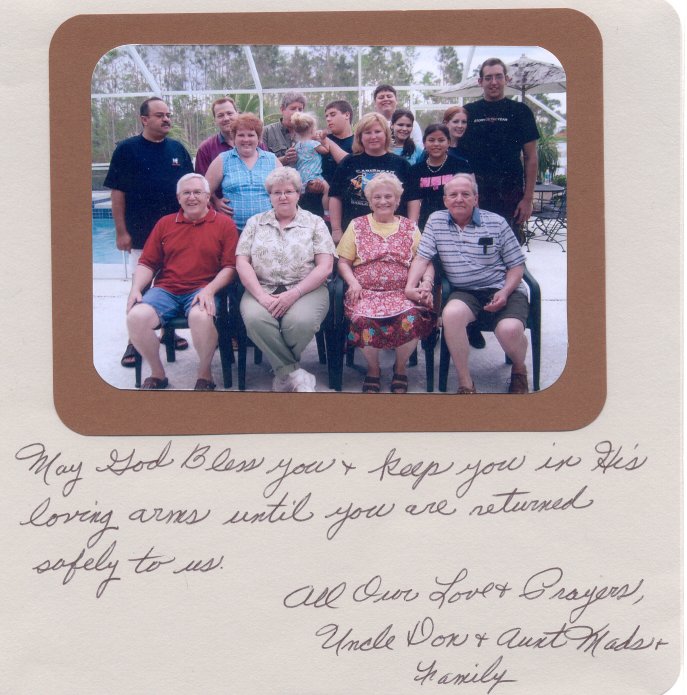 CARIBBEAN
May God Bless you + keep you in His
loving arms until you are returned
safely to us.
All Our Love + Prayers,
Uncle Don + Aunt Mads +
Family